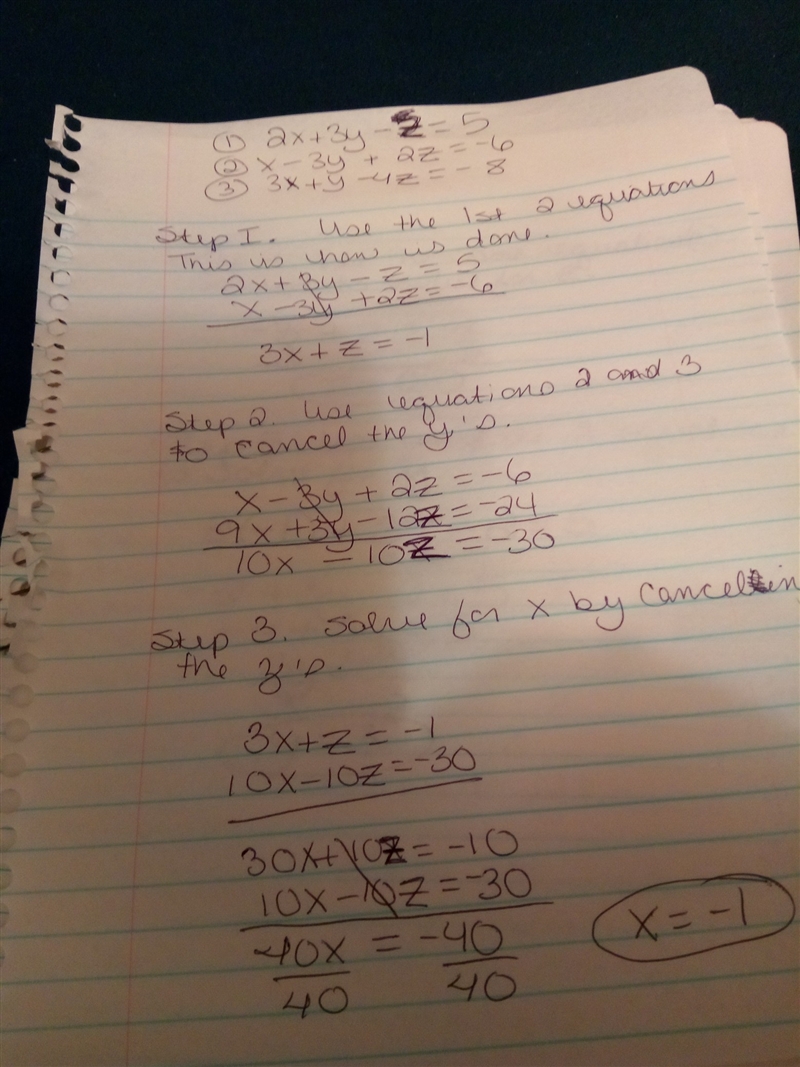 ① 2x+3y-z=5
② x-3y + 2z=-6
③ 3x+y-4z=-8
Step I. Use the 1st 2 equations
This is how is done.
2x+3y-z=5
x-3y+2z=-6
3x+z=-1
Step 2. Use equations 2 and 3
to cancel the y's.
x-3y+2z=-6
9x+3y-12z=-24
10x -10z=-30
Step 3. Solve for x by cancelin
the z's.
3x+z=-1
10x-10z=-30
30x+10z=-10
10x-10z=-30
40x = -40
40 40
x=-1